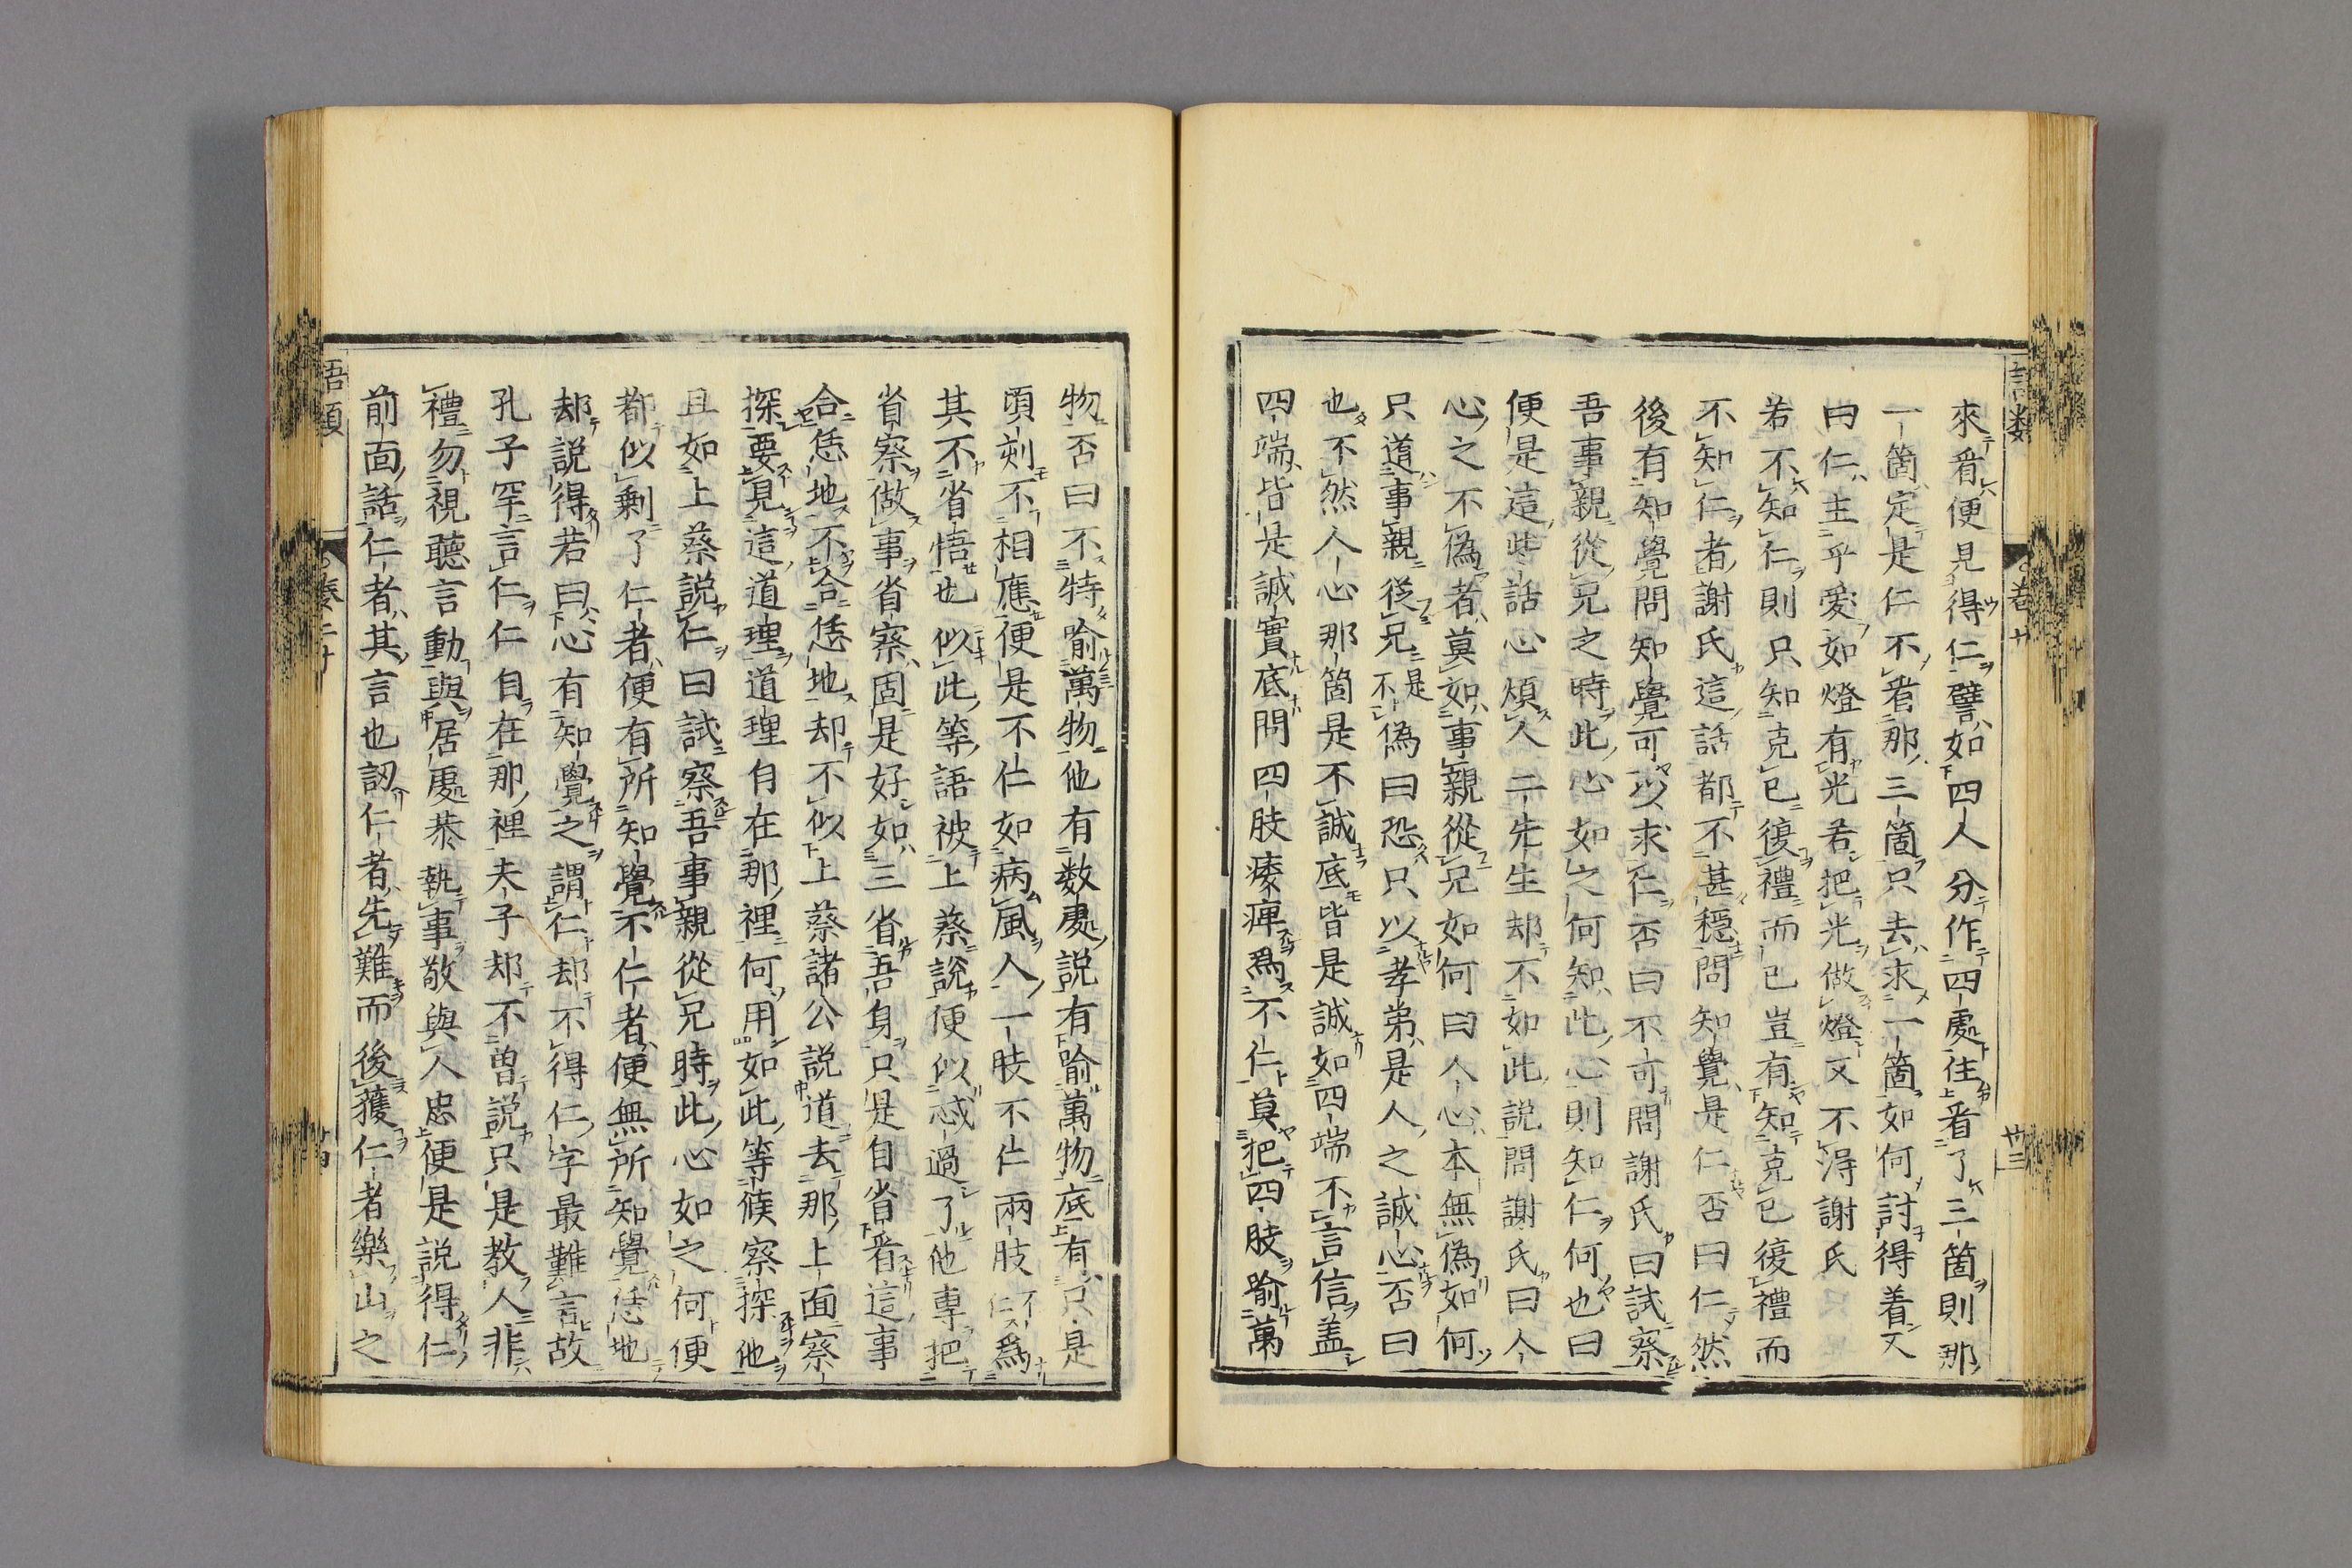 來看便見得仁譬如四人分作四處住看了三箇則那
一箇定是仁不看那三箇只去求一箇如何討得着又
曰仁主乎愛如燈有光若把光做燈又不淂謝氏
若不知仁則只知克已復禮而已豈有知克已復禮而
不知仁者謝氏這話都不甚穩問知覺是仁否曰仁然
後有知覺問知覺可以求仁否曰不可問謝氏曰試察
吾事親從兄之時此心如之何知此心則知仁何也曰
便是這些話心煩人二先生却不如此説問謝氏曰人
心之不偽者莫如事親從兄如何曰人心本無偽如何
只道事親從兄是不偽曰恐只以孝弟是人之誠心否曰
也不然人心那箇是不誠底皆是誠如四端不言信盖
四端皆是誠實底問四肢痿痺爲不仁莫把四肢喻萬
物否曰不特喻萬物他有数處説有喻萬物底有只是
頃刻不相應便是不仁如病風人一肢不仁兩肢不仁爲
其不省悟也似此等語被上蔡説便似忒過了他專把
省察做事省察固是好如三省吾身只是自省看這事
合恁地不合恁地却不似上蔡諸公説道去那上面察
探要見這道理道理自在那裡何用如此等候察探他
且如上蔡説仁曰試察吾事親從兄時此心如之何便
都似剩了仁者便有所知覺不仁者便無所知覺恁地
却説得若曰心有知覺之謂仁却不得仁字最難言故
孔子罕言仁仁自在那裡夫子却不曽説只是教人非
禮勿視聽言動與居處恭執事敬與人忠便是説得仁
前面話仁者其言也訒仁者先難而後獲仁者樂山之